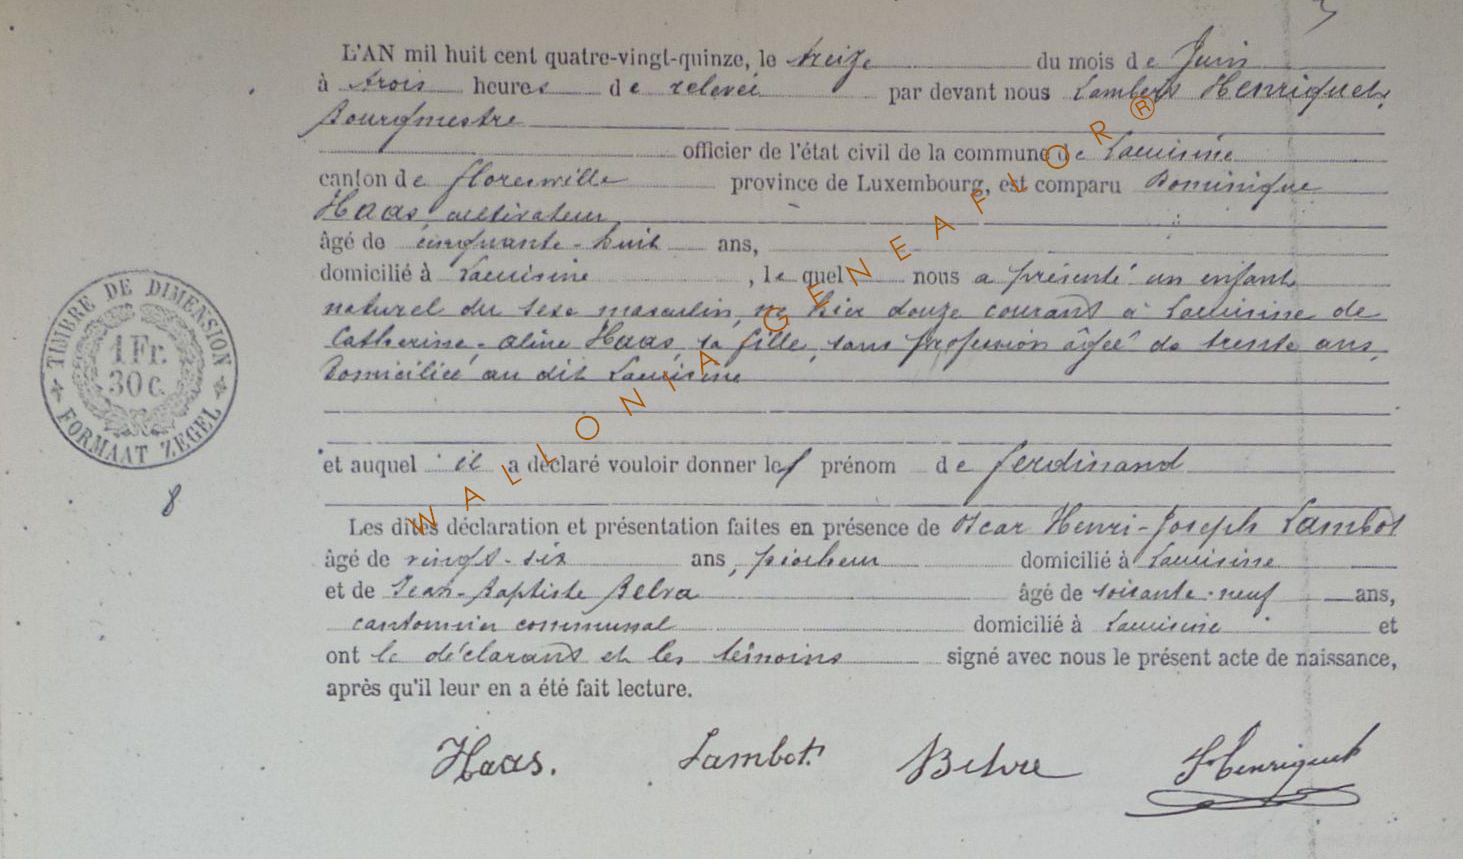 L'AN mil huit cent quatre-vingt-quinze, le treize du mois de Juin
à trois heures de relevée par devant nous Lambert Henriquet,
Bourgmestre
officier de l'état civil de la commune de Lacuisine
canton de florenville province de Luxembourg, est comparu Dominique
Haas, cultivateur
âgé de cinquante-huit ans,
domicilié à Lacuisine, lequel nous a présenté un enfant
naturel du sexe masculin, né hier douze courant à Lacuisine de
Catherine-aline Haas, sa fille, sans profession âgée de trente ans,
Domiciliée au dit Lacuisine
et auquel il a déclaré vouloir donner le prénom de ferdinand
Les dites déclaration et présentation faites en présence de Oscar Henri-Joseph Lambot
âgé de vingt-six ans, piocheur domicilié à Lacuisine
et de Jean-Baptiste Belva âgé de soixante-neuf ans,
cantonnier communal domicilié à Lacuisine et
ont le déclarant et les témoins signé avec nous le présent acte de naissance,
après qu'il leur en a été fait lecture.
Haas. Lambot Henriquet
TIMBRE DE DIMENSION
1 Fr.
30 c.
FORMAAT ZEGEL
8
WALLONIA GENEAFLOR®